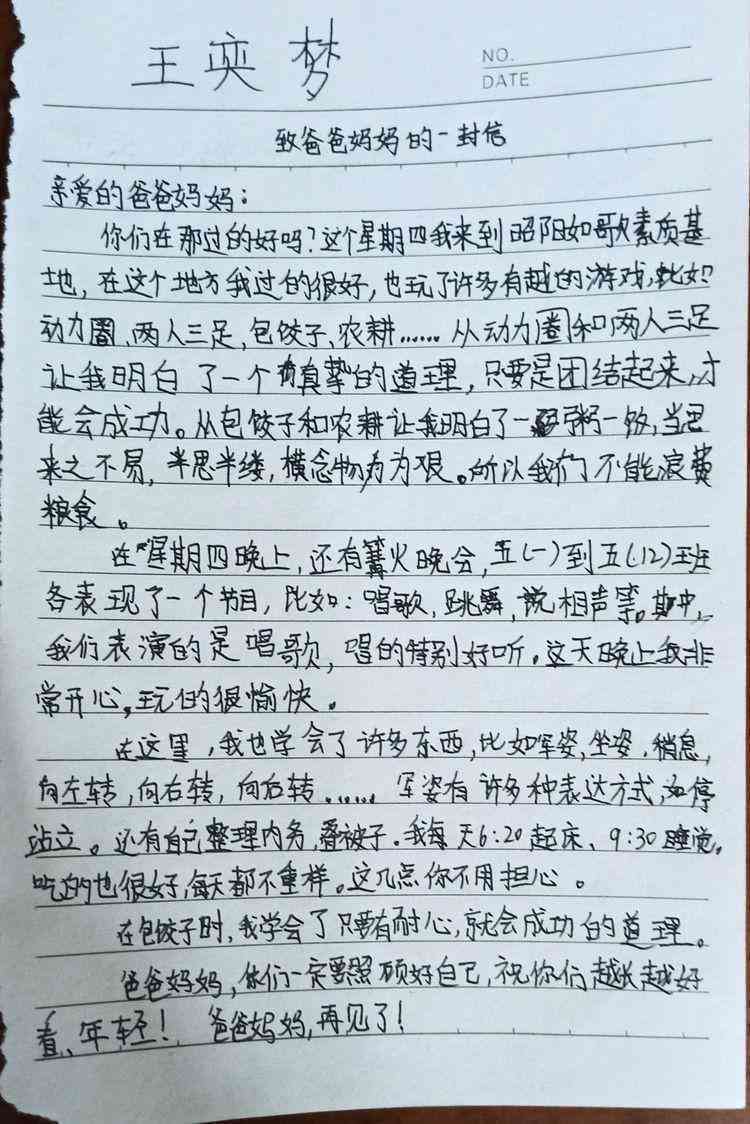 王奕梦
NO.
DATE
致爸爸妈妈的一封信
亲爱的爸爸妈妈：
你们在那过的好吗？这个星期四我来到昭阳如歌素质基
地，在这个地方我过的很好，也玩了许多有趣的游戏，比如
动力圈，两人三足，包饺子、农耕……从动力圈和两人三足
让我明白了一个真挚的道理，只要是团结起来，才
能会成功。从包饺子和农耕让我明白了一粥一饭，当思
来之不易，半思半缕，横念物为艰。所以我们不能浪费
粮食。
在星期四晚上，还有篝火晚会，五(一)到五(12)班
各表现了一个节目，比如：唱歌，跳舞，说相声等。其中，
我们表演的是唱歌，唱的特别好听。这天晚上我非
常开心，玩的很愉快。
在这里，我也学会了许多东西，比如军姿，坐姿，稍息，
向左转，向右转，向右转……军姿有许多种表达方式，如停
站立。还有自己整理内务，叠被子。我每天6:20起床、9:30睡觉。
吃的也很好，每天都不重样。这几点你不用担心。
在包饺子时，我学会了只要有耐心，就会成功的道理。
爸爸妈妈，你们一定要照顾好自己，祝你们越长越好
看、年轻！爸爸妈妈，再见了！